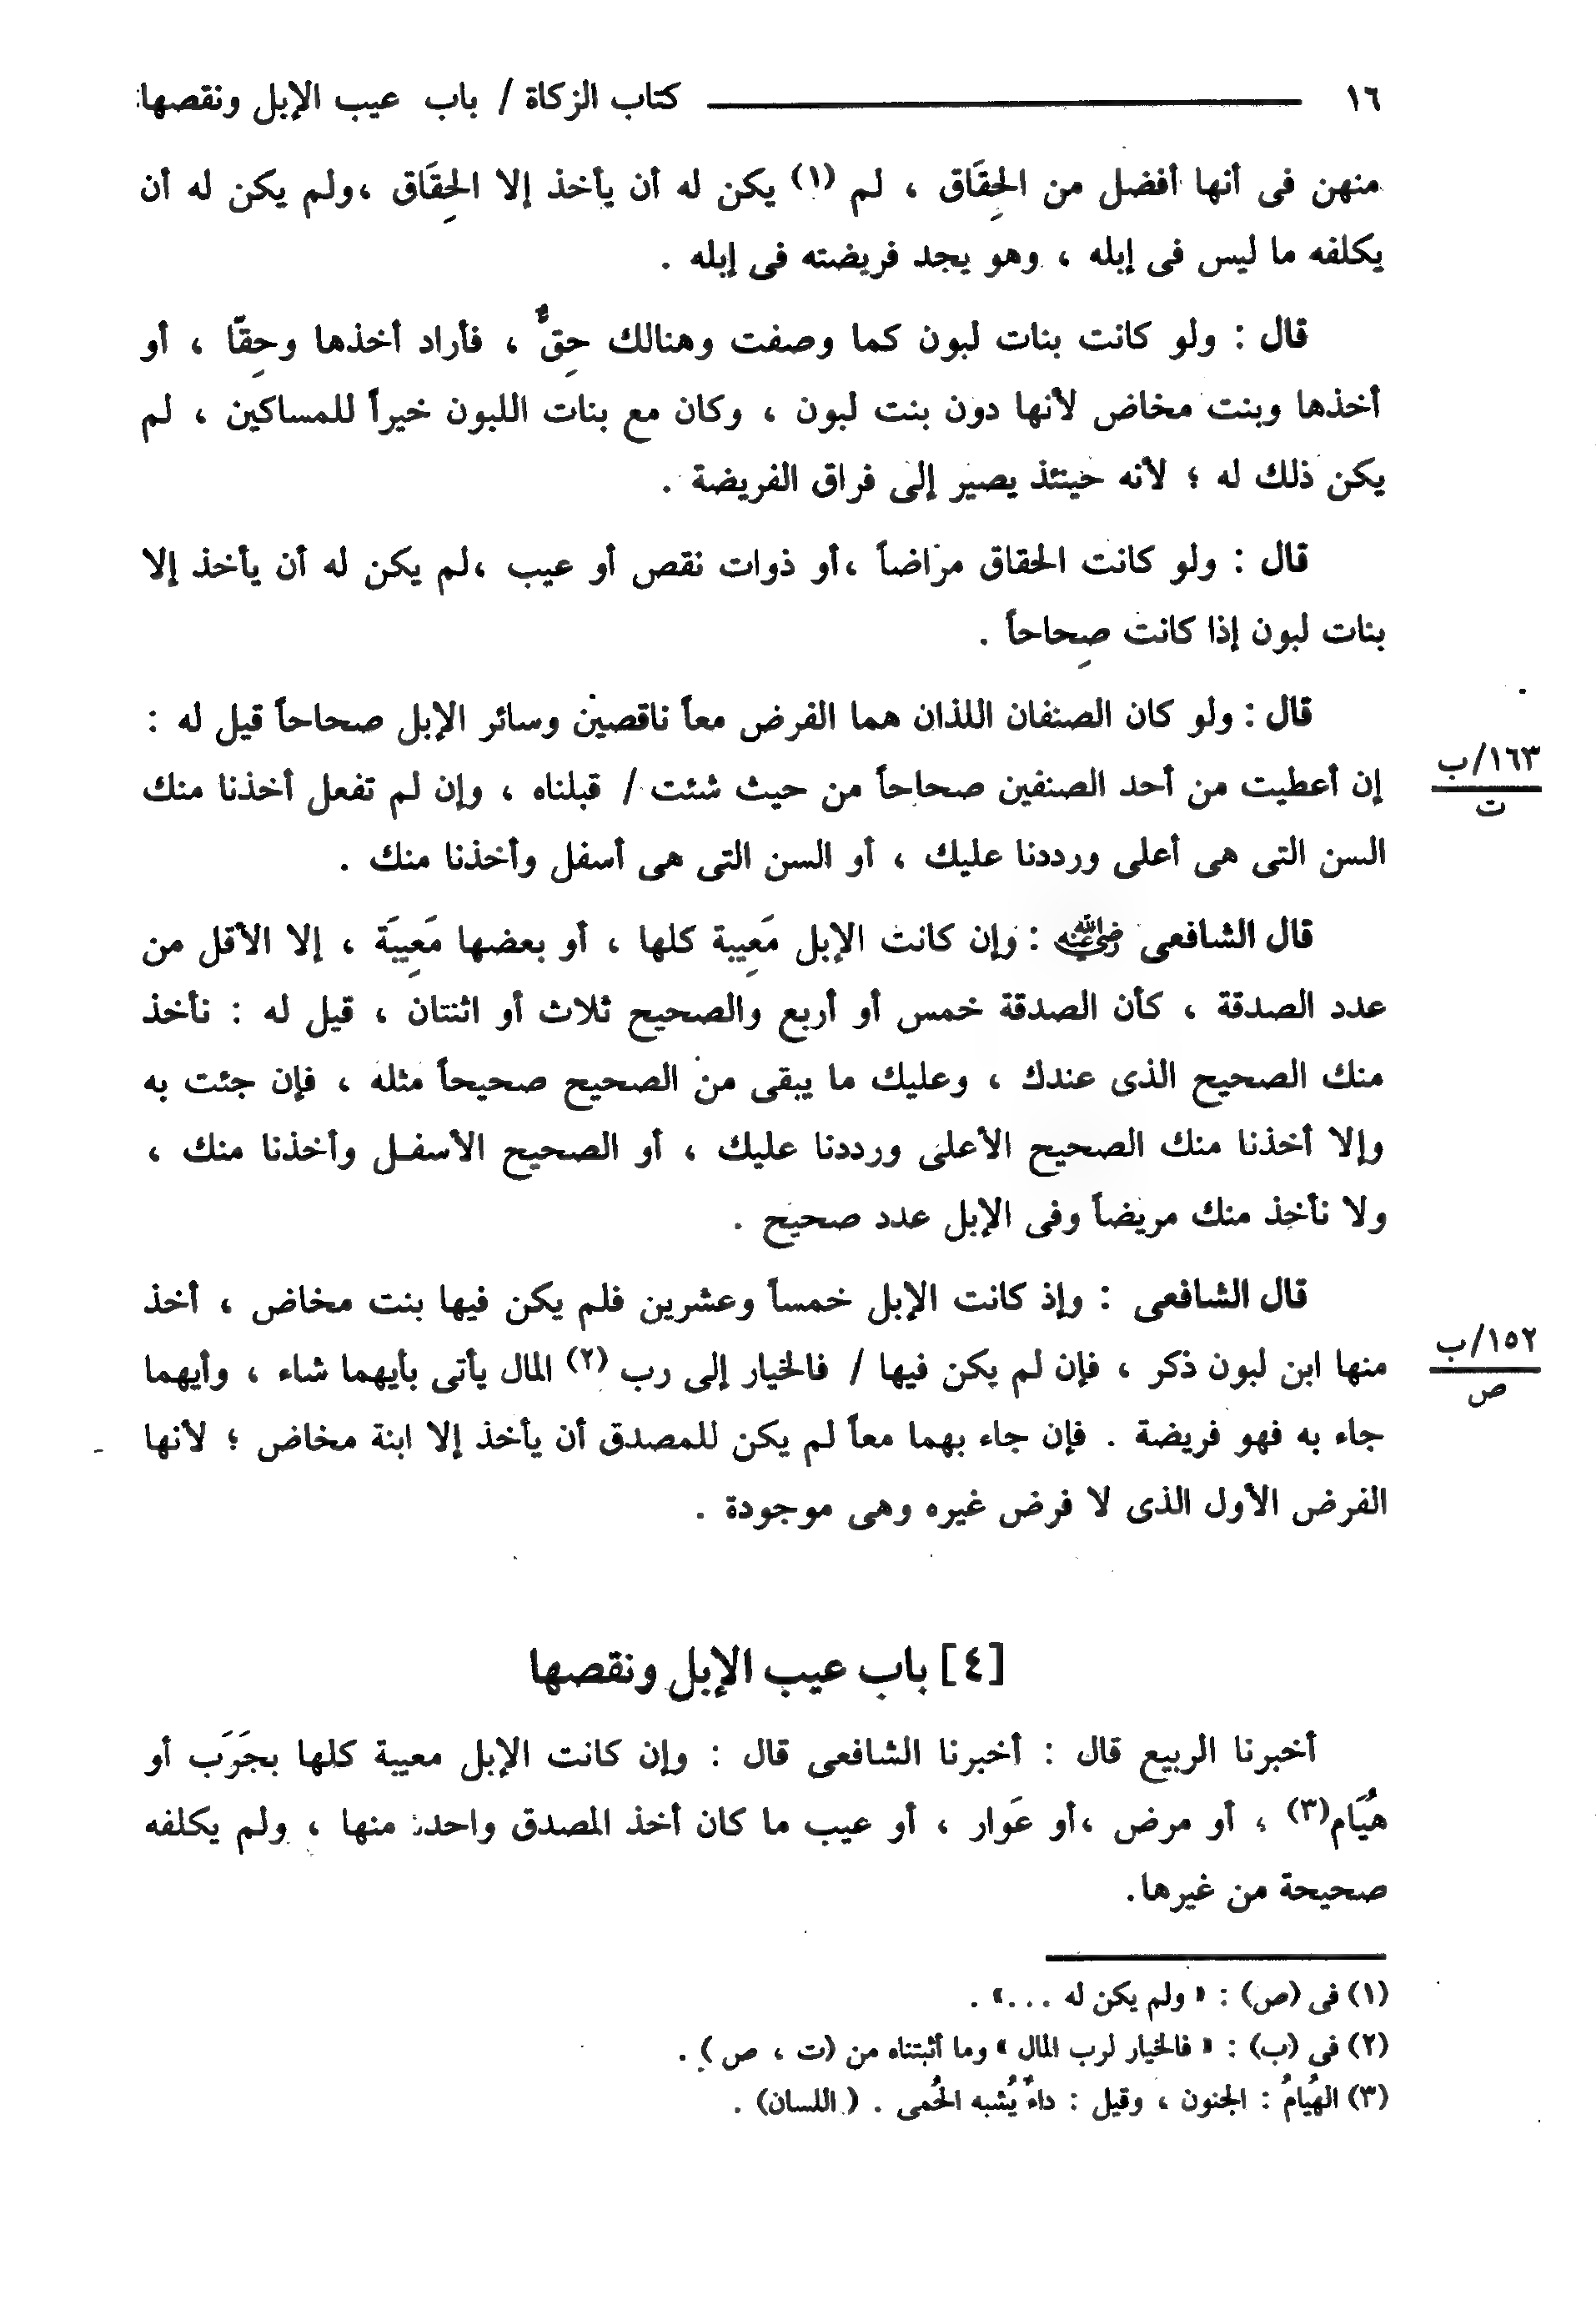 ١٦ كتاب الزكاة / باب عيب الإبل ونقصها
منهن فى أنها أفضل من الحِقَاق ، لم (١) يكن له أن يأخذ إلا الحِقَاق ،ولم يكن له أن
يكلفه ما ليس فى إبله ، وهو يجد فريضته فى إبله .
قال : ولو كانت بنات لبون كما وصفت وهنالك حِقٌّ ، فأراد أخذها وحِقّا ، أو
أخذها وبنت مخاض لأنها دون بنت لبون ، وكان مع بنات اللبون خيراً للمساكين ، لم
يكن ذلك له ؛ لأنه حينئذ يصير إلى فراق الفريضة .
قال : ولو كانت الحقاق مراضاً ،أو ذوات نقص أو عيب ،لم يكن له أن يأخذ إلا
بنات لبون إذا كانت صِحاحاً .
قال : ولو كان الصنفان اللذان هما الفرض معاً ناقصين وسائر الإبل صحاحاً قيل له :
١٦٣/ب
ت
إن أعطيت من أحد الصنفين صحاحاً من حيث شئت / قبلناه ، وإن لم تفعل أخذنا منك
السن التى هى أعلى ورددنا عليك ، أو السن التى هى أسفل وأخذنا منك .
قال الشافعى رضي الله عنه : وإن كانت الإبل مَعِيبة كلها ، أو بعضها مَعِيبَة ، إلا الأقل من
عدد الصدقة ، كأن الصدقة خمس أو أربع والصحيح ثلاث أو اثنتان ، قيل له : نأخذ
منك الصحيح الذى عندك ، وعليك ما يبقى من الصحيح صحيحاً مثله ، فإن جئت به
وإلا أخذنا منك الصحيح الأعلى ورددنا عليك ، أو الصحيح الأسفل وأخذنا منك ،
ولا نأخذ منك مريضاً وفى الإبل عدد صحيح .
قال الشافعى : وإذ كانت الإبل خمساً وعشرين فلم يكن فيها بنت مخاض ، أخذ
١٥٢/ب
ص
منها ابن لبون ذكر ، فإن لم يكن فيها / فالخيار إلى رب (٢) المال يأتى بأيهما شاء ، وأيهما
جاء به فهو فريضة . فإن جاء بهما معاً لم يكن للمصدق أن يأخذ إلا ابنة مخاض ؛ لأنها
الفرض الأول الذى لا فرض غيره وهى موجودة .
[٤] باب عيب الإبل ونقصها
أخبرنا الربيع قال : أخبرنا الشافعى قال : وإن كانت الإبل معيبة كلها بجَرَب أو
هُيَام(٣) ، أو مرض ،أو عَوار ، أو عيب ما كان أخذ المصدق واحدة منها ، ولم يكلفه
صحيحة من غيرها.
(١) فى (ص) : « ولم يكن له ...» .
(٢) فى (ب) : « فالخيار لرب المال » وما أثبتناه من (ت ، ص ) .
(٣) الهُيَامُ : الجنون ، وقيل : داءٌ يُشبه الحُمى . ( اللسان) .